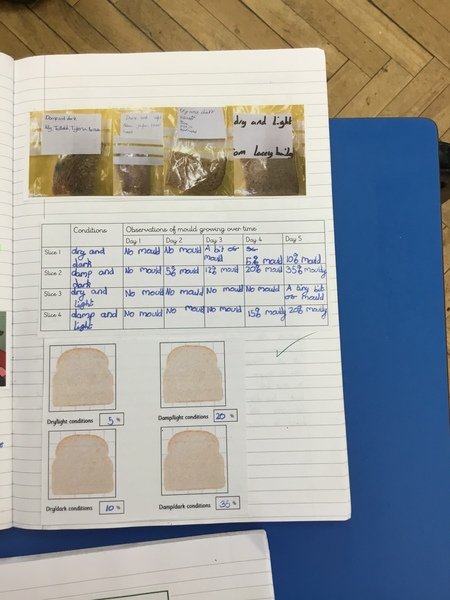 Damp and dark
Damp and
dry and dark
dry and light
Conditions
Observations of mould growing over time
Day 1 Day 2 Day 3 Day 4 Day 5
Slice 1 dry and dark No mould No mould A bit of mould 5% mould 10% mould
Slice 2 damp and dark No mould 5% mould 12% mould 20% mould 35% mouldy
Slice 3 dry and light No mould No mould No mould No mould A tiny bit of mould
Slice 4 damp and light No mould No mould No mould 15% mouldy 20% mouldy
Dry/light conditions 5 %
Damp/light conditions 20 %
Dry/dark conditions 10 %
Damp/dark conditions 35 %